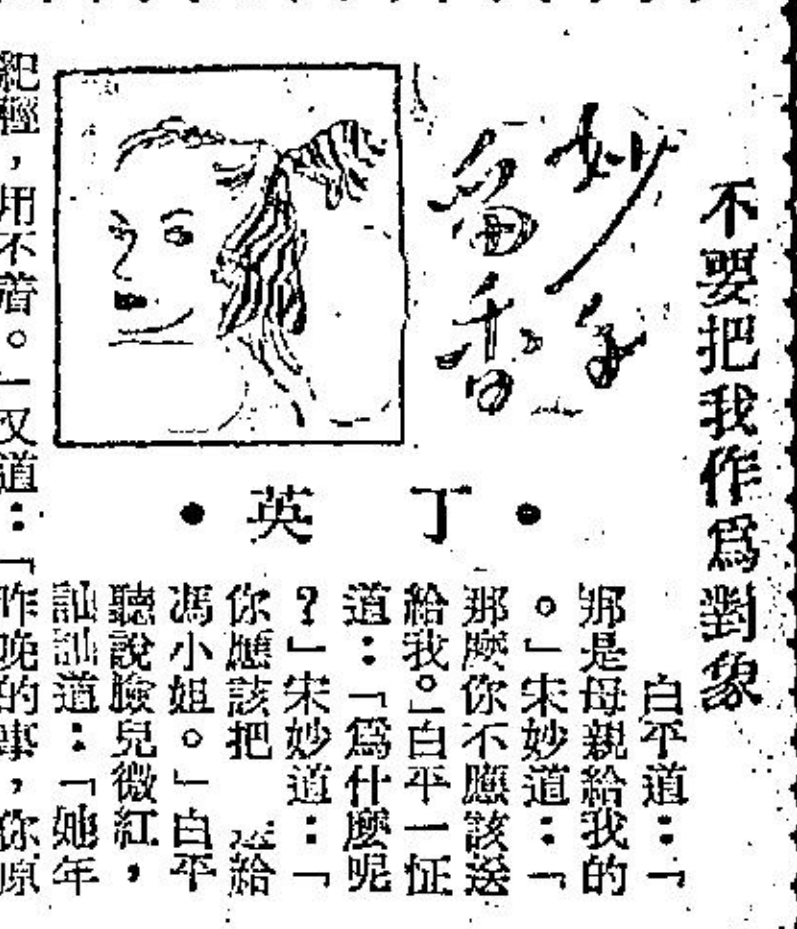 不要把我作爲對象
妙手
留香
•丁英•
白平道：「
那是母親給我的
。」宋妙道：「
那麽你不應該送
給我。」白平一怔
道：「爲什麼呢
？」宋妙道：「
你應該把 送給
馮小姐。」白平
聽說臉兒微紅，
訕訕道：「她年
紀輕，用不着。」又道：「昨晚的事，你原